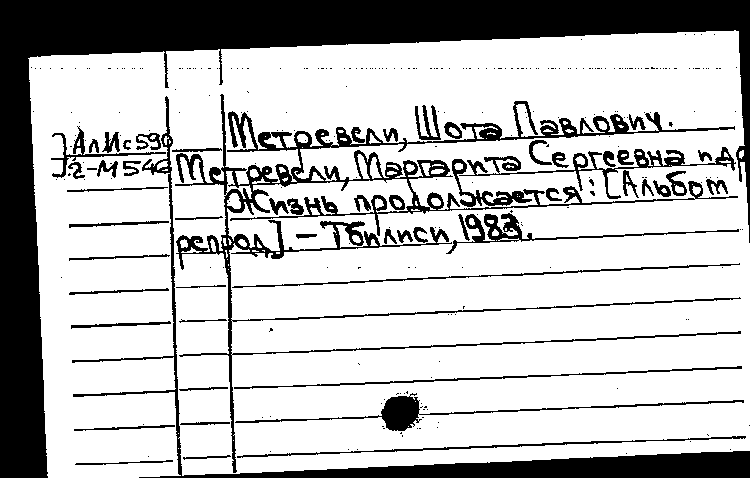 Метревели, Шота Павлович.
]АлИс590
]2-М546
Метревели, Маргарита Сергеевна и др
Жизнь продолжается: [Альбом
репрод]. - Тбилиси, 1983.